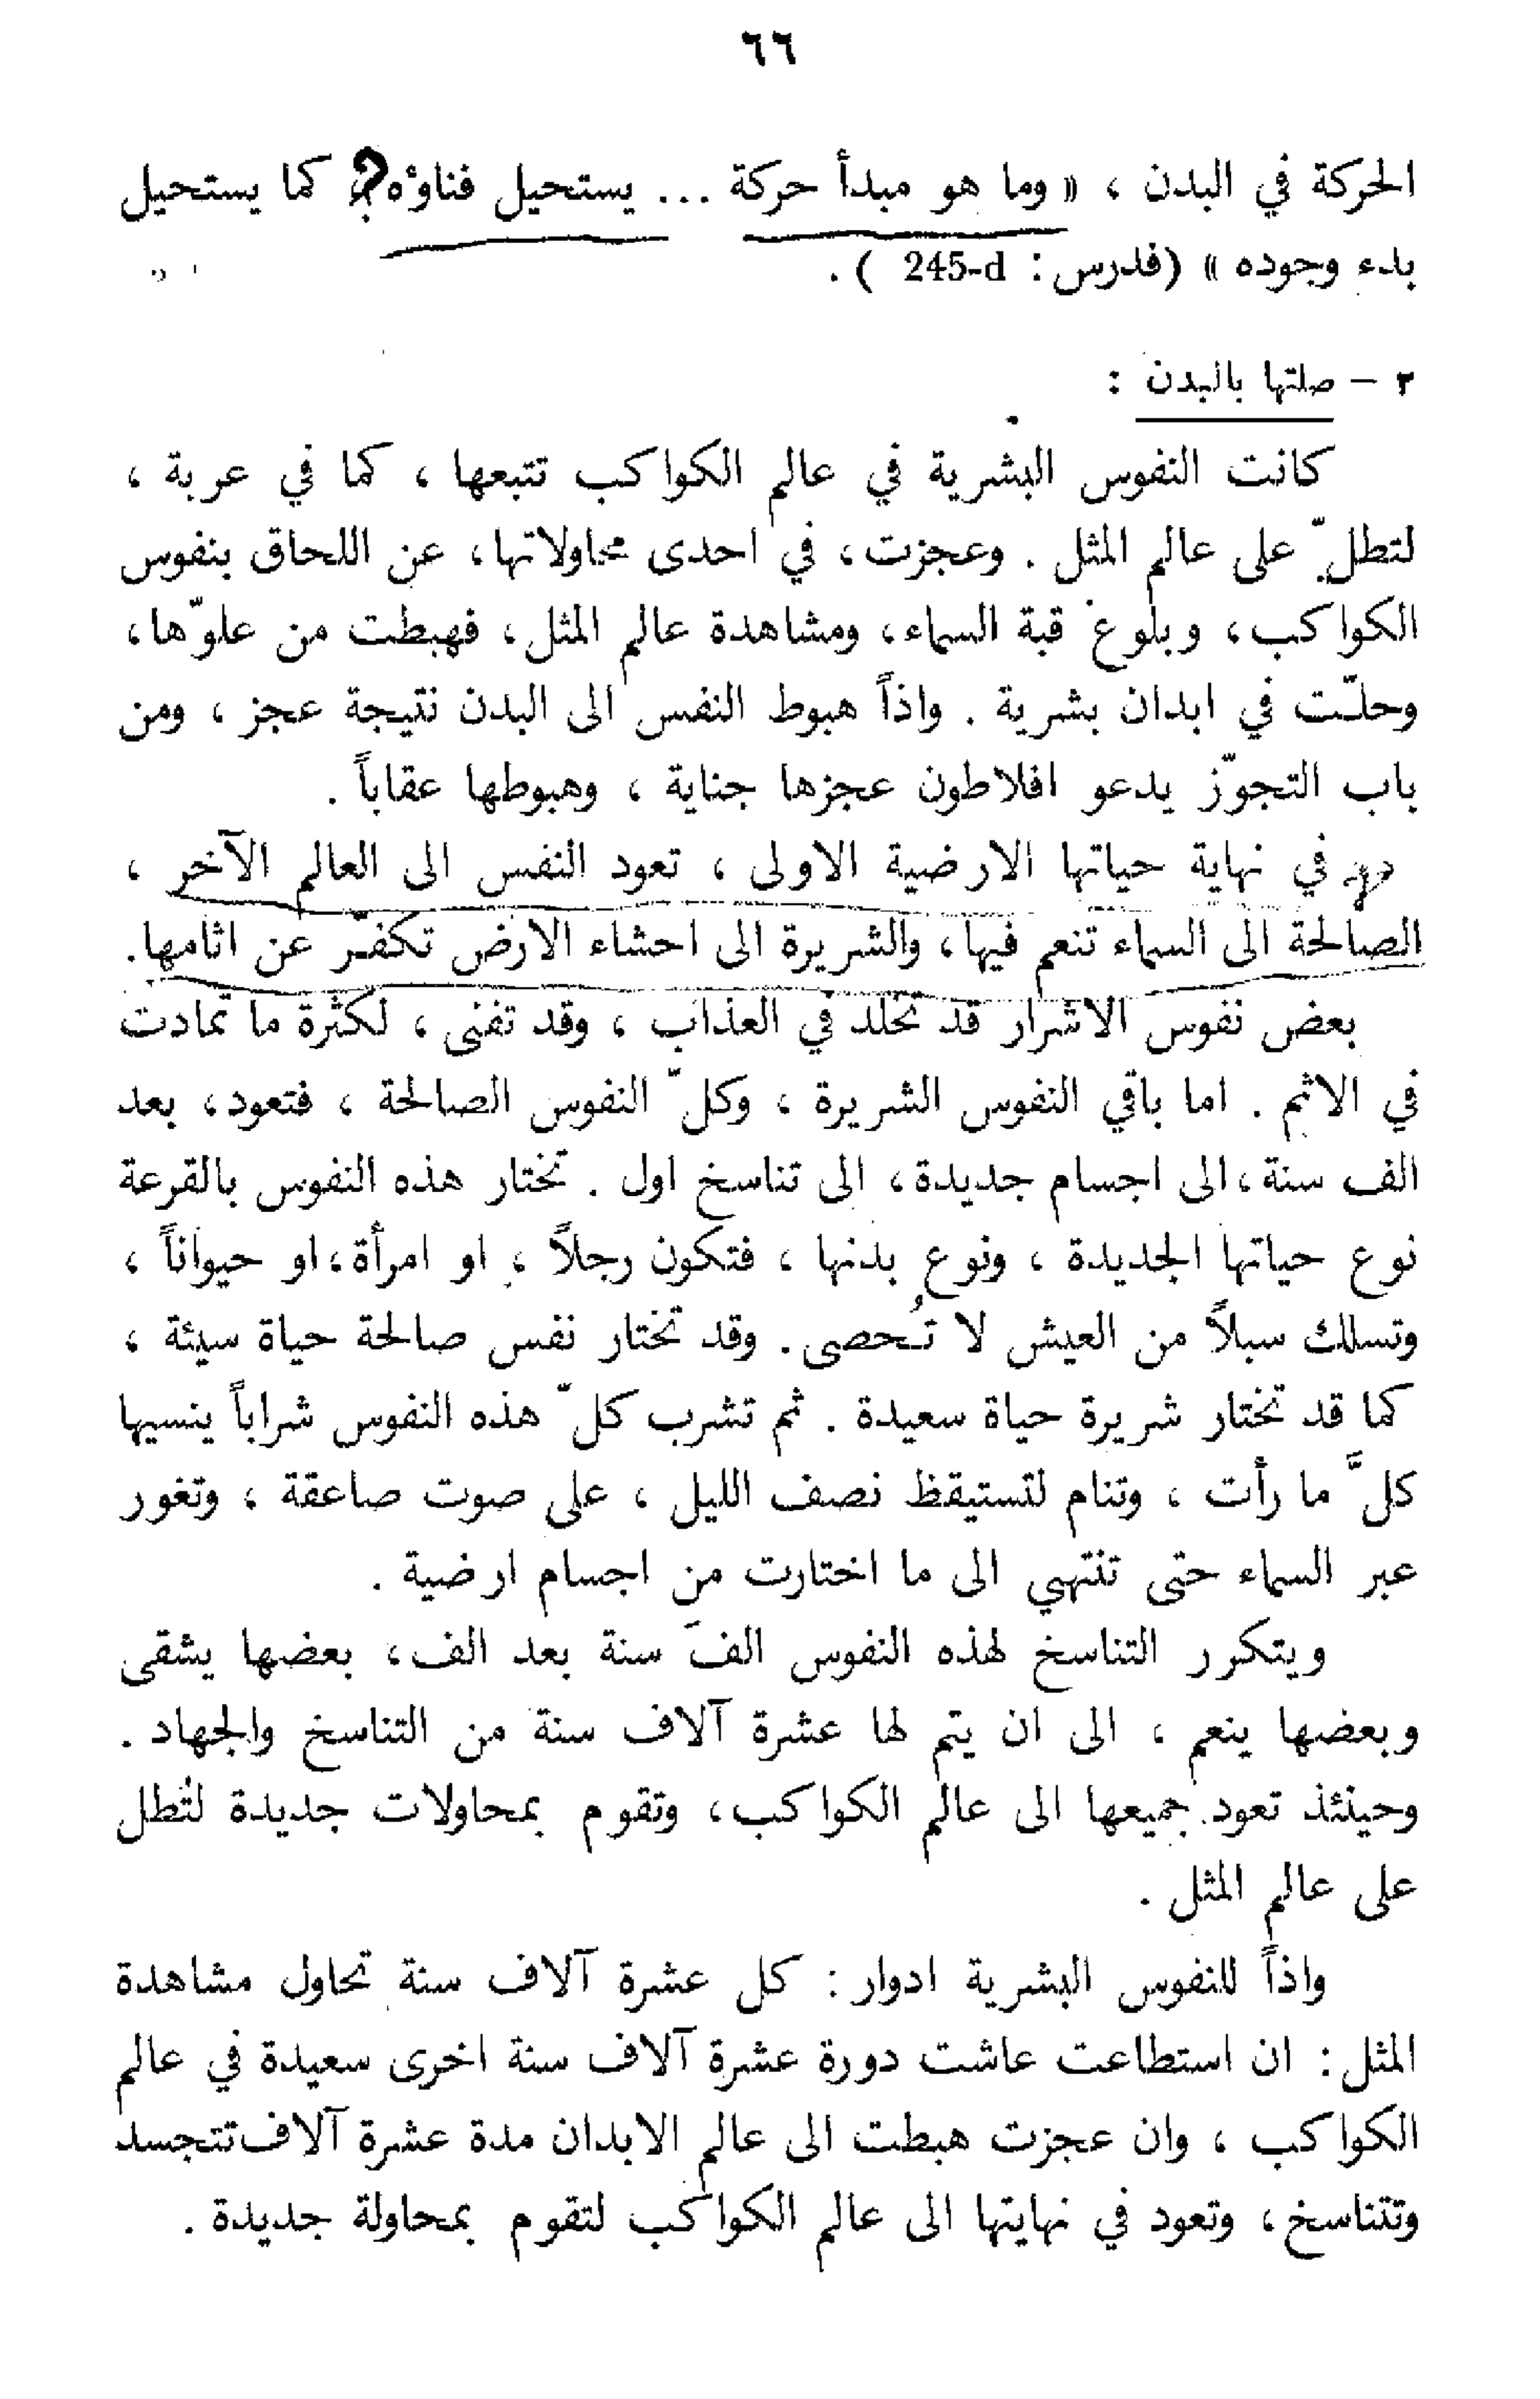 ٦٦
الحركة في البدن ، « وما هو مبدأ حركة ... يستحيل فناؤه ? كما يستحيل
بدء وجوده » (فدرس : 245-d ) .
٢ – صلتها بالبدن :
كانت النفوس البشرية في عالم الكواكب تتبعها ، كما في عربة ،
لتطلّ على عالم المثل . وعجزت ، في احدى محاولاتها ، عن اللحاق بنفوس
الكواكب ، وبلوغ قبة السماء ، ومشاهدة عالم المثل ، فهبطت من علوّها ،
وحلّت في ابدان بشرية . واذاً هبوط النفس الى البدن نتيجة عجز ، ومن
باب التجوّز يدعو افلاطون عجزها جناية ، وهبوطها عقاباً .
في نهاية حياتها الارضية الاولى ، تعود النفس الى العالم الآخر ،
الصالحة الى السماء تنعم فيها ، والشريرة الى احشاء الارض تكفّر عن اثامها .
بعض نفوس الاشرار قد تخلد في العذاب ، وقد تفنى ، لكثرة ما تمادت
في الاثم . اما باقي النفوس الشريرة ، وكلّ النفوس الصالحة ، فتعود ، بعد
الف سنة ، الى اجسام جديدة ، الى تناسخ اول . تختار هذه النفوس بالقرعة
نوع حياتها الجديدة ، ونوع بدنها ، فتكون رجلاً ، او امرأة ، او حيواناً ،
وتسلك سبلاً من العيش لا تُحصى . وقد تختار نفس صالحة حياة سيئة ،
كما قد تختار شريرة حياة سعيدة . ثم تشرب كلّ هذه النفوس شراباً ينسيها
كلَّ ما رأت ، وتنام لتستيقظ نصف الليل ، على صوت صاعقة ، وتغور
عبر السماء حتى تنتهي الى ما اختارت من اجسام ارضية .
ويتكرر التناسخ لهذه النفوس الفَ سنة بعد الف ، بعضها يشقى
وبعضها ينعم ، الى ان يتم لها عشرة آلاف سنة من التناسخ والجهاد .
وحينئذ تعود جميعها الى عالم الكواكب ، وتقوم بمحاولات جديدة لتُطل
على عالم المثل .
واذاً للنفوس البشرية ادوار : كل عشرة آلاف سنة تحاول مشاهدة
المثل : ان استطاعت عاشت دورة عشرة آلاف سنة اخرى سعيدة في عالم
الكواكب ، وان عجزت هبطت الى عالم الابدان مدة عشرة آلاف تتجسد
وتتناسخ ، وتعود في نهايتها الى عالم الكواكب لتقوم بمحاولة جديدة .